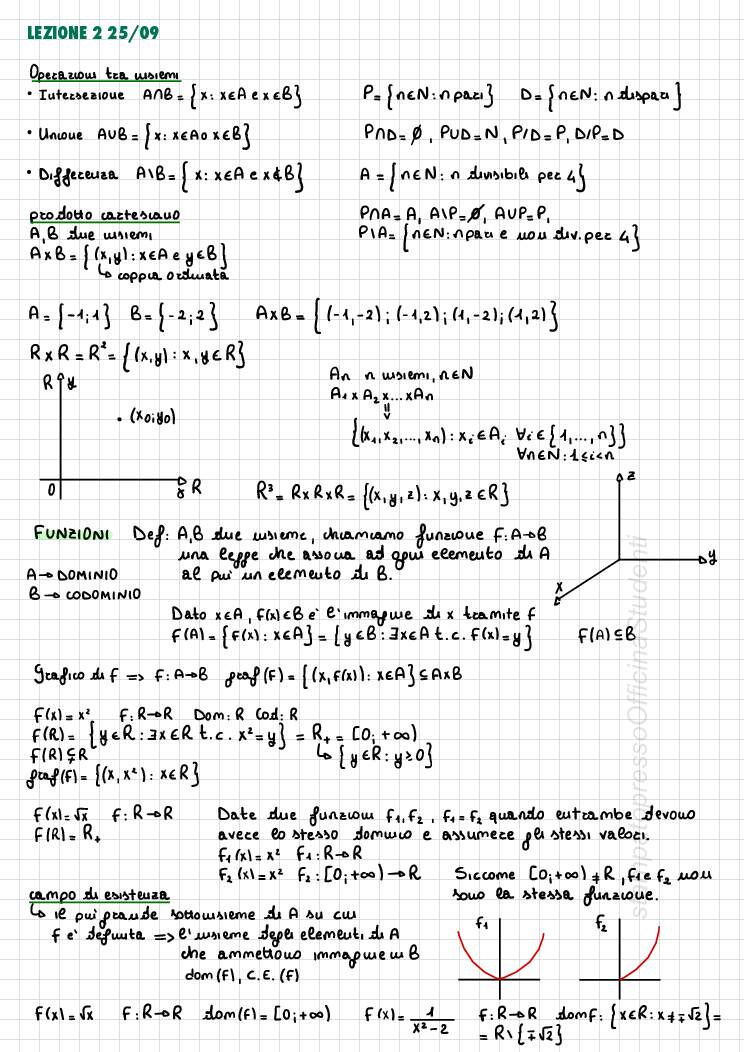 LEZIONE 2 25/09
Operazioni tra insiemi
• Intersezione A∩B = {x: x∈A e x∈B}
P = {n∈N: n pari} D = {n∈N: n dispari}
• Unione A∪B = {x: x∈A o x∈B}
P∩D = ∅, P∪D = N, P/D = P, D/P = D
• Differenza A\B = {x: x∈A e x∉B}
A = {n∈N: n divisibili per 4}
prodotto cartesiano
P∩A = A, A\P = ∅, A∪P = P,
A,B due insiemi
P\A = {n∈N: n pari e non div. per 4}
A×B = {(x,y): x∈A e y∈B}
↳ coppia ordinata
A = {-1;1} B = {-2;2} A×B = {(-1,-2); (-1,2); (1,-2); (1,2)}
R×R = R² = {(x,y): x,y∈R}
R y
• (x0;y0)
0 x R
An n insiemi, n∈N
A1 × A2 × ... × An
{(x1, x2, ..., xn): xi∈Ai ∀i∈{1,...,n}}
∀n∈N: 1≤i<n
R³ = R×R×R = {(x,y,z): x,y,z∈R}
z
y
x
FUNZIONI Def: A,B due insieme, chiamiamo funzione f: A→B
una legge che associa ad ogni elemento di A
A → DOMINIO al più un elemento di B.
B → CODOMINIO
Dato x∈A, f(x)∈B è l'immagine di x tramite f
f(A) = {f(x): x∈A} = {y∈B: ∃x∈A t.c. f(x)=y} f(A)⊆B
Grafico di f => f: A→B graf(f) = {(x,f(x)): x∈A} ⊆ A×B
f(x) = x² f: R→R Dom: R Cod: R
f(R) = {y∈R: ∃x∈R t.c. x²=y} = R+ = [0; +∞)
f(R)⊊R ↳ {y∈R: y≥0}
graf(f) = {(x,x²): x∈R}
f(x) = √x f: R→R
f(R) = R+
Date due funzioni f1,f2, f1=f2 quando entrambe devono
avere lo stesso dominio e assumere gli stessi valori.
f1(x) = x² f1: R→R
f2(x) = x² f2: [0;+∞)→R
Siccome [0;+∞) ≠ R, f1 e f2 non
sono la stessa funzione.
campo di esistenza
↳ il più grande sottoinsieme di A su cui
f è definita => l'insieme degli elementi di A
che ammettono immagine in B
dom(f), C.E.(f)
f1
f2
f(x) = √x f: R→R dom(f) = [0;+∞) f(x) = 1/(x²-2) f: R→R domf: {x∈R: x≠∓√2} =
= R\{∓√2}
stampatoppressoOfficinaStudenti